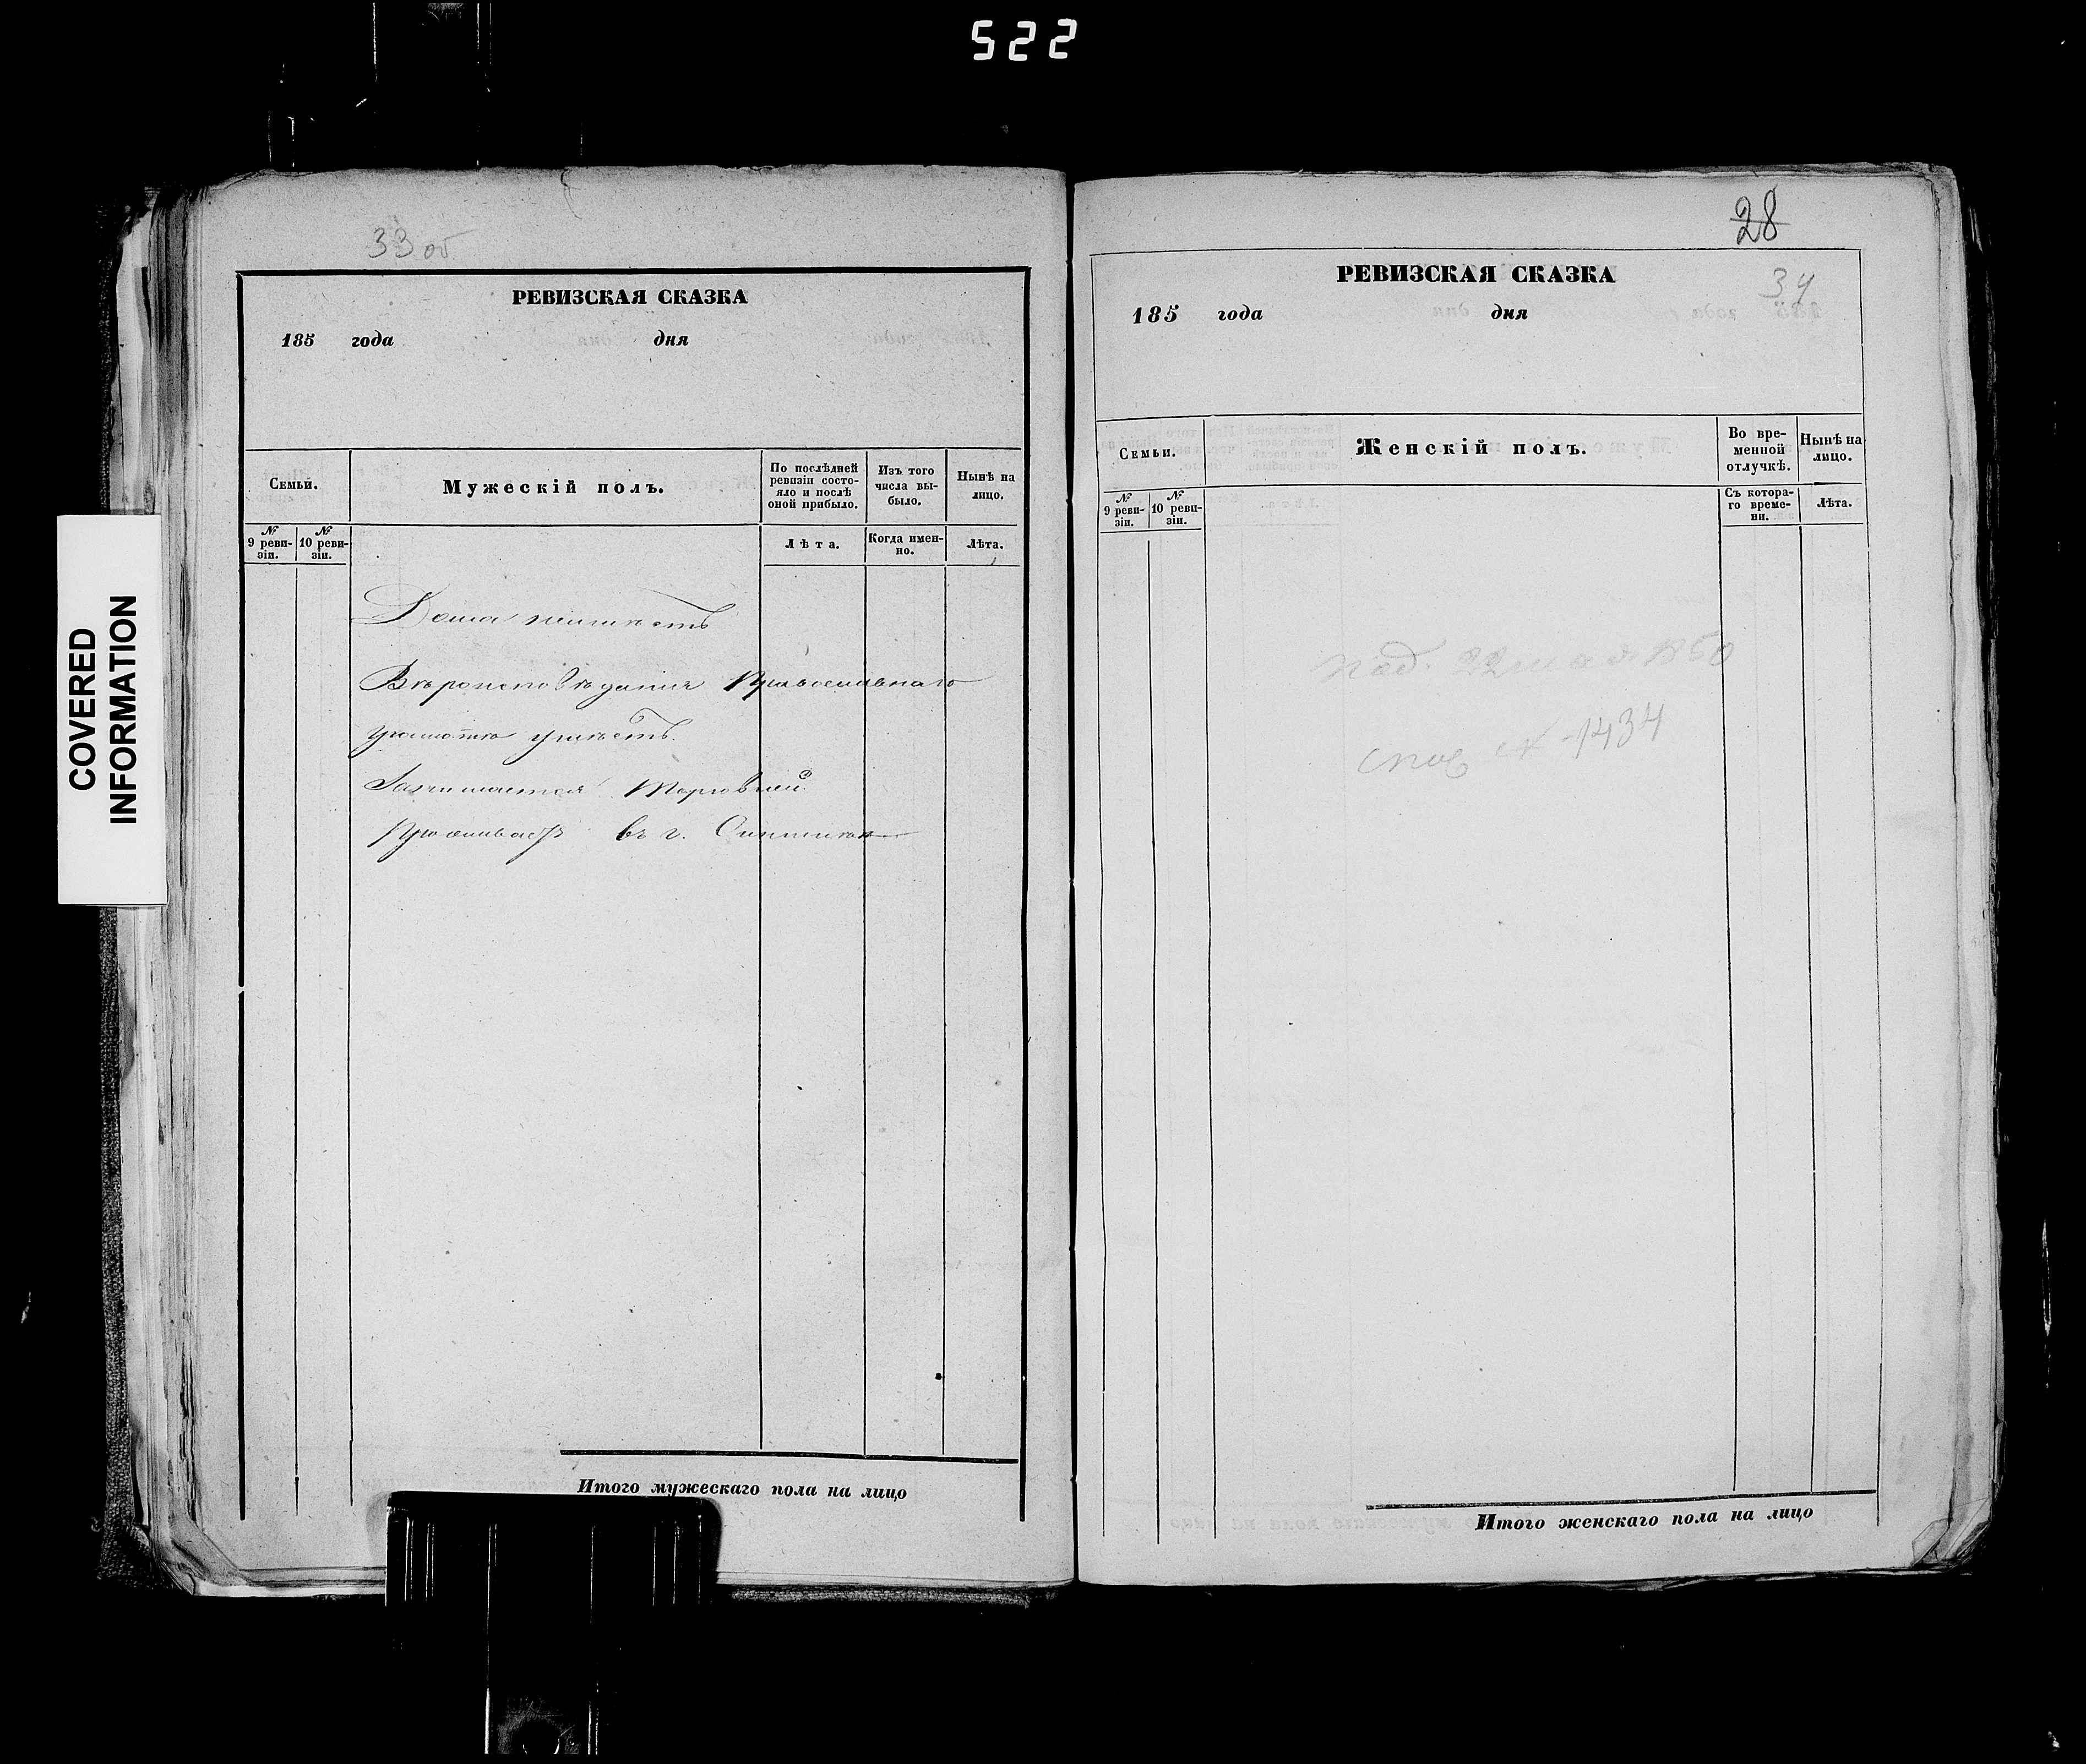 522
COVERED
INFORMATION
33 об
РЕВИЗСКАЯ СКАЗКА
185 года дня
Семьи.
Мужескій полъ.
По послѣдней
ревизіи состо-
яло и послѣ
оной прибыло.
Изъ того
числа вы-
было.
Нынѣ на
лицо.
№
9 реви-
зіи.
№
10 реви-
зіи.
Лѣта.
Когда имен-
но.
Лѣта.
Дома неимѣетъ
Вѣроисповѣданія Православнаго
грамотѣ умѣетъ.
Занимается Торговлей.
Проживаетъ въ г.
Итого мужескаго пола на лицо
28
34
РЕВИЗСКАЯ СКАЗКА
185 года дня
Семьи.
Женскій полъ.
Во вре-
менной
отлучкѣ.
Нынѣ на
лицо.
№
9 реви-
зіи.
№
10 реви-
зіи.
Съ котора-
го време-
ни.
Лѣта.
под. 22 мая 1850
1434
Итого женскаго пола на лицо